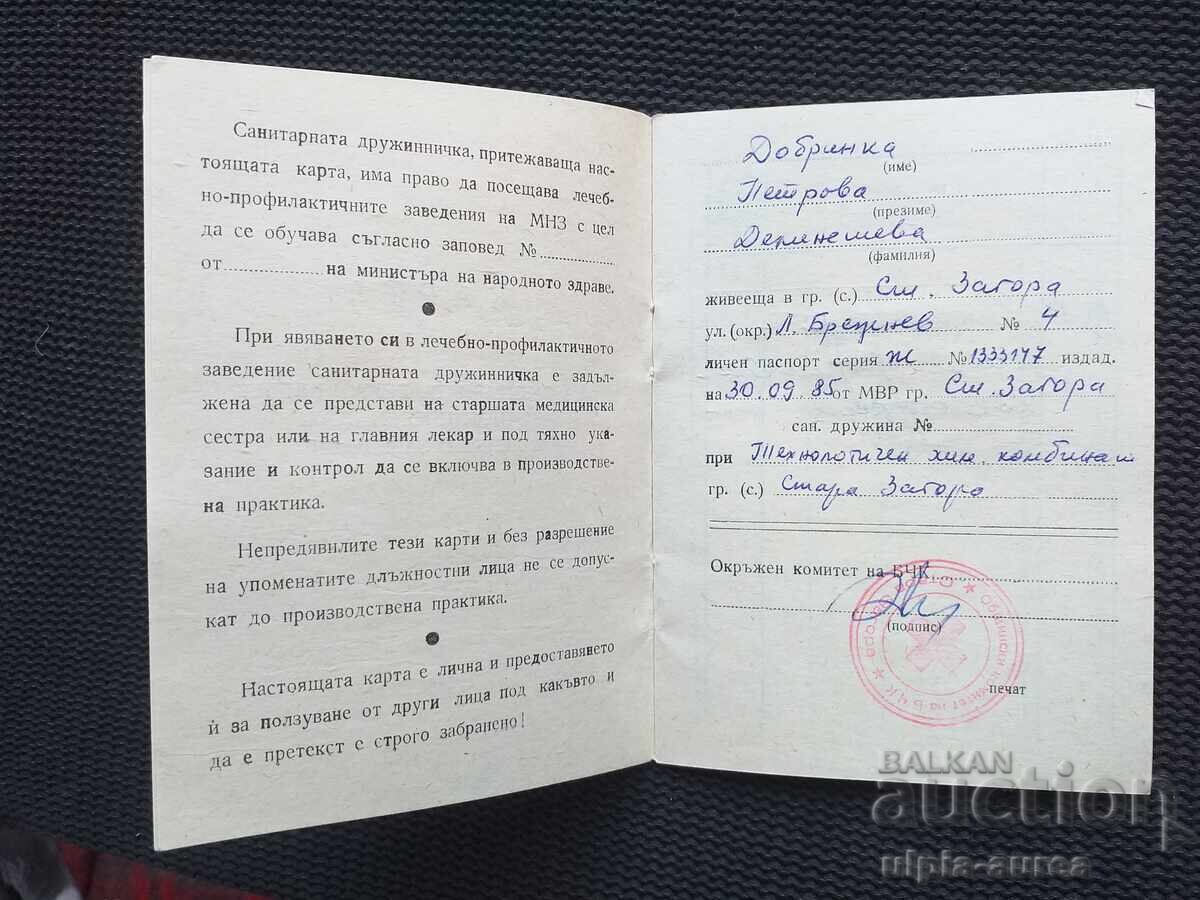 Санитарната дружинничка, притежаваща нас-
тоящата карта, има право да посещава лечеб-
но-профилактичните заведения на МНЗ с цел
да се обучава съгласно заповед №
от на министъра на народното здраве.
При явяването си в лечебно-профилактичното
заведение санитарната дружинничка е задъл-
жена да се представи на старшата медицинска
сестра или на главния лекар и под тяхно ука-
зание и контрол да се включва в производстве-
на практика.
Непредявилите тези карти и без разрешение
на упоменатите длъжностни лица не се допус-
кат до производствена практика.
Настоящата карта е лична и предоставянето
ѝ за ползуване от други лица под какъвто и
да е претекст е строго забранено!
Добринка
(име)
Петрова
(презиме)
(фамилия)
живееща в гр. (с.) Ст. Загора
ул. (окр.) Л. Брежнев № 4
личен паспорт серия Ж № 1333147 издад.
на 30.09.85 от МВР гр. Ст. Загора
сан. дружина №
при Технологичен хим. комбинат
гр. (с.) Стара Загора
Окръжен комитет на БЧК
(подпис)
печат
Общински комитет на БЧК ★ Стара Загора ★
BALKAN
auction
ulpia-aurea